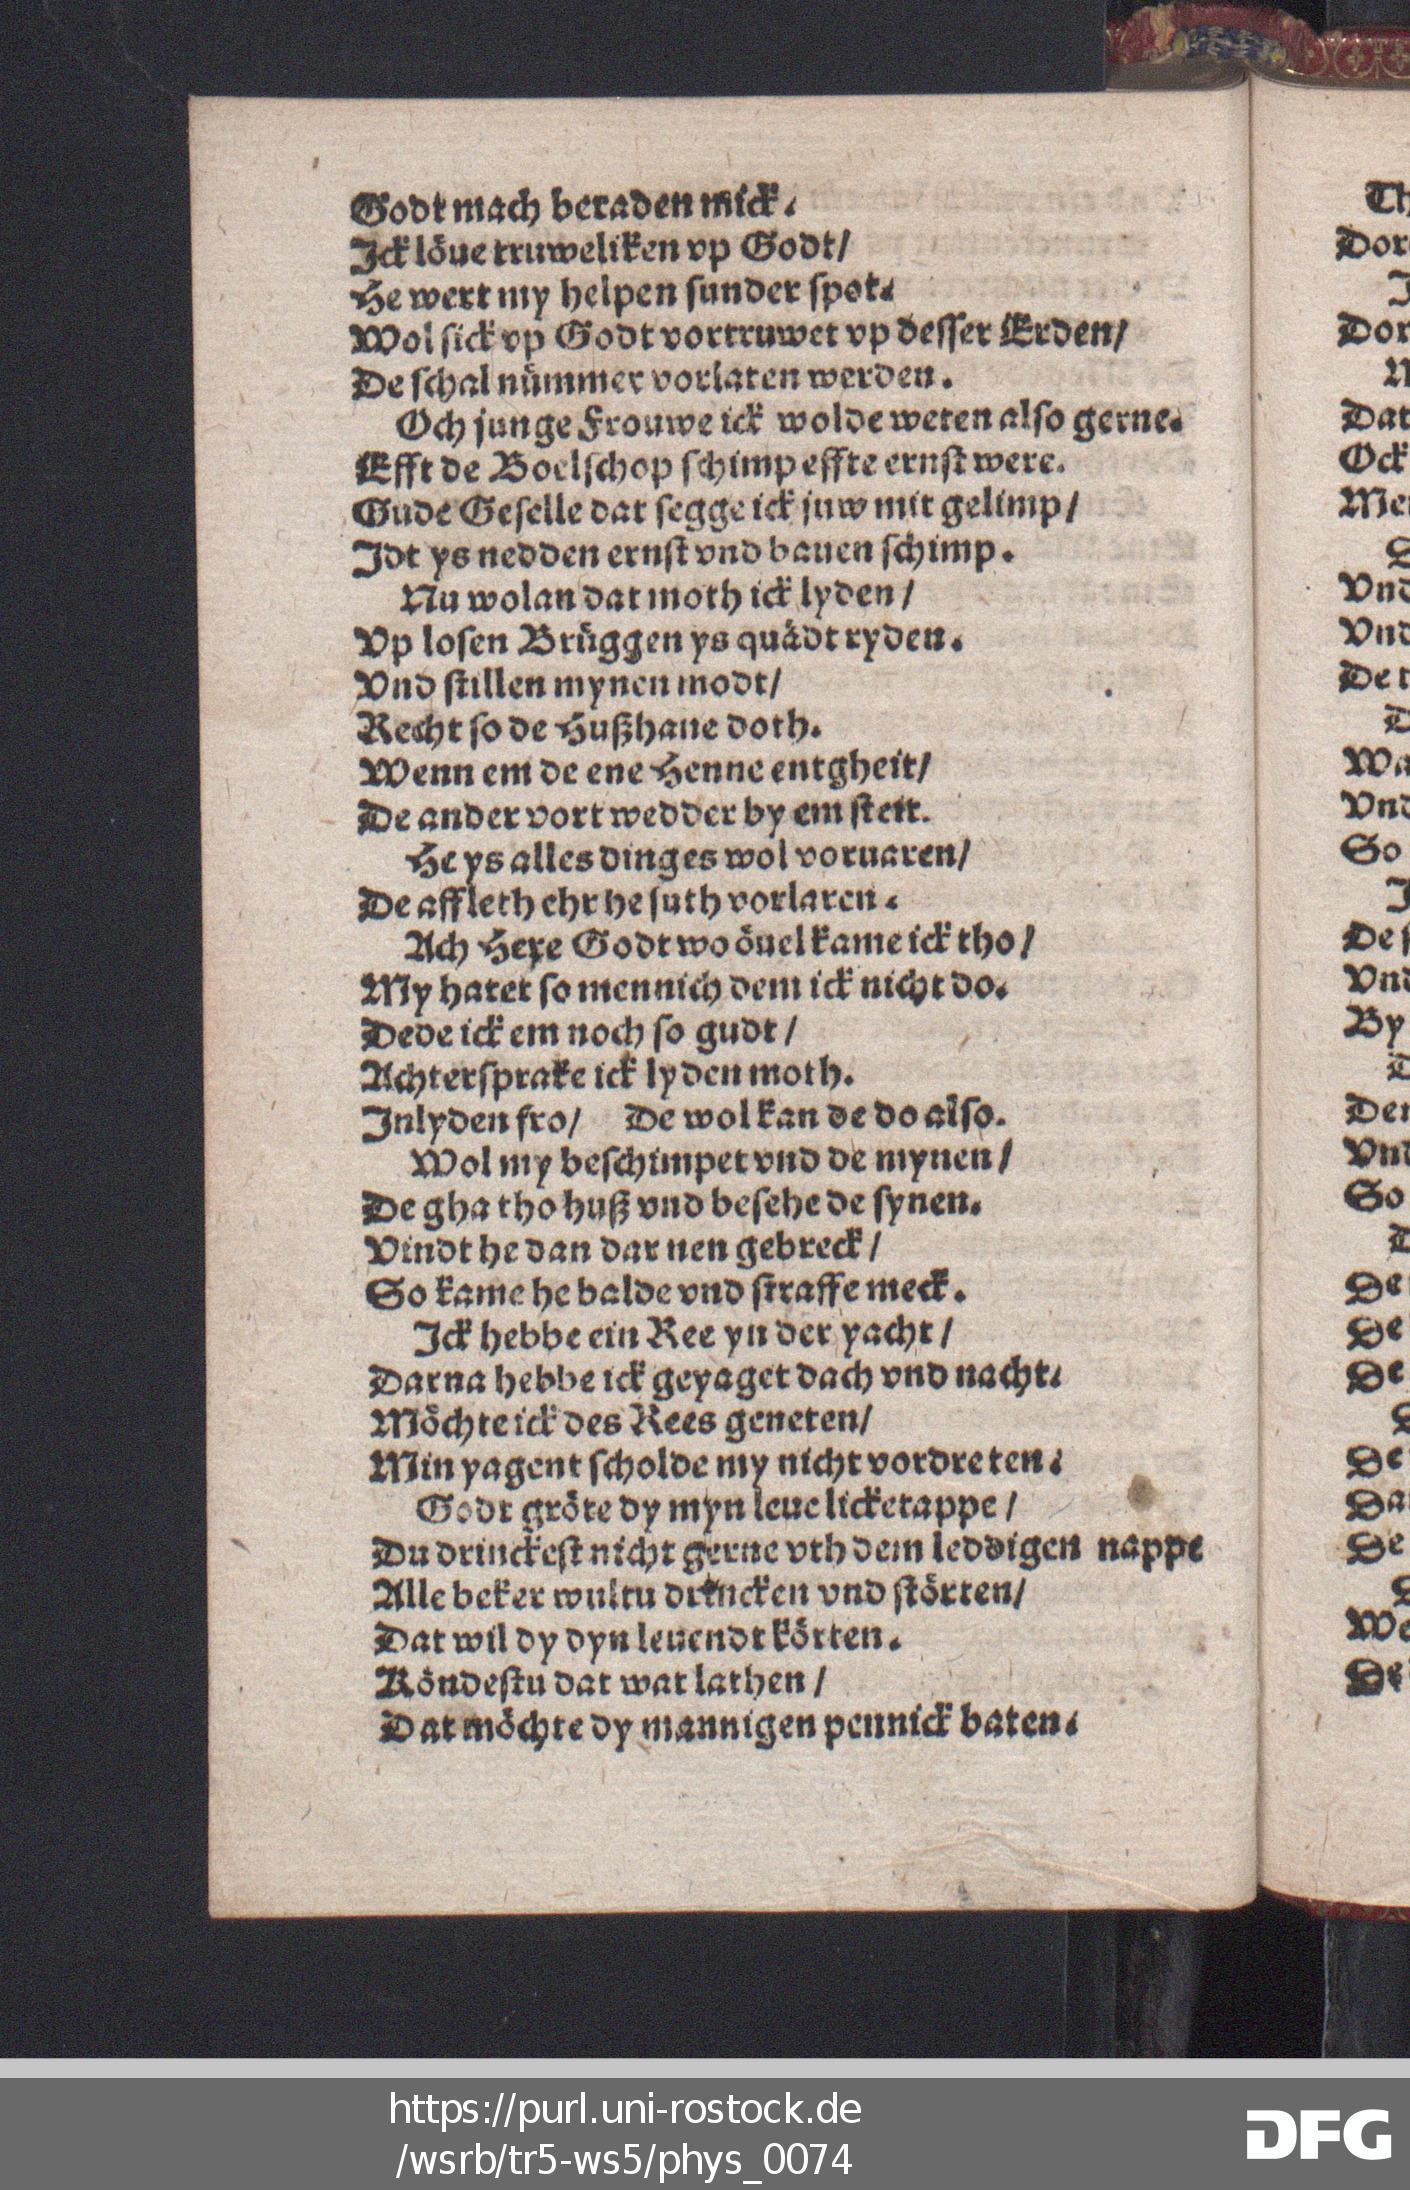 Godt mach beraden mick.
Ick löue truweliken vp Godt/
He wert my helpen sunder spot.
Wol sick vp Godt vortruwet vp desser Erden/
De schal nümmer vorlaten werden.
Och junge Frouwe ick wolde weten also gerne.
Efft de Boelschop schimp effte ernst were.
Gude Geselle dat segge ick juw mit gelimp/
Idt ys nedden ernst vnd bauen schimp.
Nu wolan dat moth ick lyden/
Vp losen Brüggen ys quädt ryden.
Vnd stillen mynen modt/
Recht so de Hußhane doth.
Wenn em de ene Henne entgheit/
De ander vort wedder by em steit.
He ys alles dinges wol voruaren/
De affleth ehr he suth vorlaren.
Ach Here Godt wo öuel kame ick tho/
My hatet so mennich dem ick nicht do.
Dede ick em noch so gudt/
Achtersprake ick lyden moth.
Inlyden fro/ De wol kan de do also.
Wol my beschimpet vnd de mynen/
De gha tho huß vnd besehe de synen.
Vindt he dan dar nen gebreck/
So kame he balde vnd straffe meck.
Ick hebbe ein Ree yn der yacht/
Darna hebbe ick geyaget dach vnd nacht.
Möchte ick des Rees geneten/
Min yagent scholde my nicht vordreten.
Godt gröte dy myn leue licketappe/
Du drinckest nicht gerne vth dem leddigen nappe
Alle beker wultu drincken vnd störten/
Dat wil dy dyn leuendt körten.
Köndestu dat wat lathen/
Dat möchte dy mannigen pennick baten.
Th
Dor
I
Dor
Dat
Ock
Vnd
Vnd
De
Wa
Vnd
So
De
Vnd
By
Vnd
So
We
https://purl.uni-rostock.de
/wsrb/tr5-ws5/phys_0074
DFG